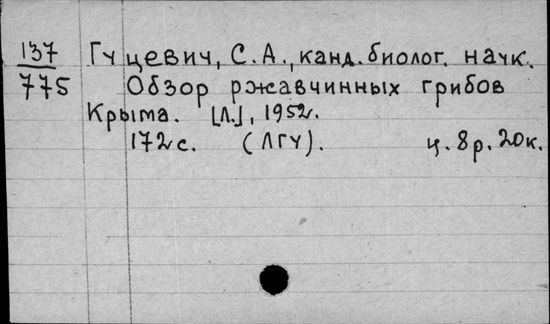 137 Гуцевич, С.А., канд. биолог. наук.
775 Обзор ржавчинных грибов
Крыма. [Л.], 1952.
172 с. (ЛГУ). ц. 8 р. 20 к.